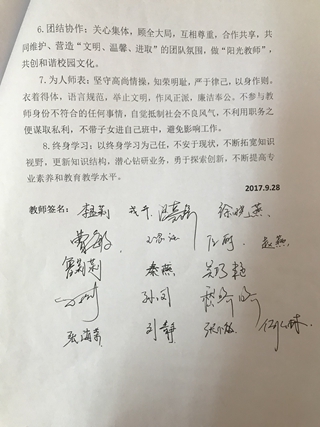 6.团结协作：关心集体，顾全大局，互相尊重，合作共享，共
同维护、营造“文明、温馨、进取”的团队氛围，做“阳光教师”，
共创和谐校园文化。
7.为人师表：坚守高尚情操，知荣明耻，严于律己，以身作则。
衣着得体，语言规范，举止文明，作风正派，廉洁奉公。不参与教
师身份不符合的任何事情，自觉抵制社会不良风气，不利用职务之
便谋取私利，不带子女进自己班中，避免影响工作。
8.终身学习：以终身学习为己任，不安于现状，不断拓宽知识
视野，更新知识结构，潜心钻研业务，勇于探索创新，不断提高专
业素养和教育教学水平。
2017.9.28
教师签名：
徐晓燕
曹敏 赵燕
曹莉莉 秦燕
刘静